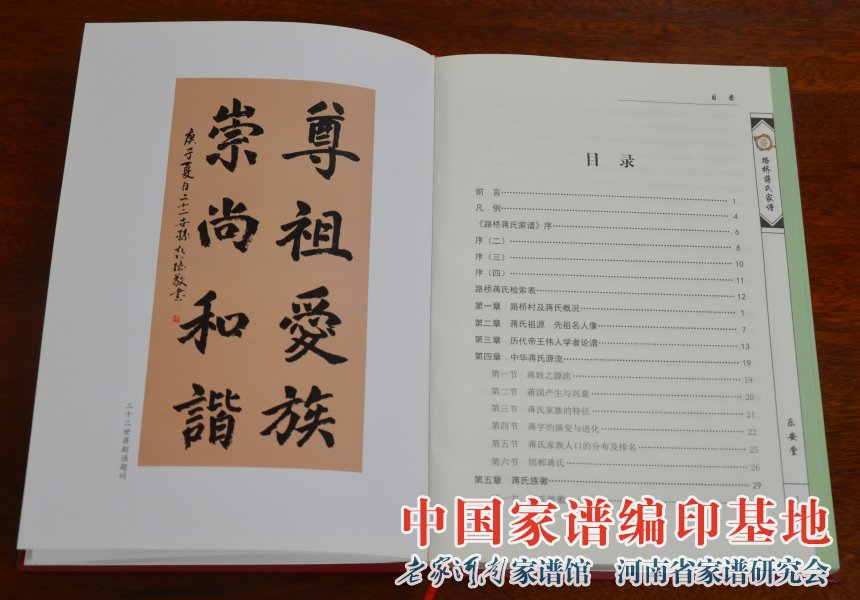 尊祖愛族
崇尚和諧
庚子夏日二十二世孫
敬書
二十二世蒋朝强题词
目 录
目 录
前 言 1
凡 例 4
《路桥蒋氏家谱》序 6
序（二） 8
序（三） 10
序（四） 11
路桥蒋氏检索表 12
第一章 路桥村及蒋氏概况 1
第二章 蒋氏祖源 先祖名人像 7
第三章 历代帝王伟人学者论谱 13
第四章 中华蒋氏源流 19
第一节 蒋姓之源流 19
第二节 蒋国产生与兴衰 20
第三节 蒋氏家族的特征 21
第四节 蒋字的演变与进化 22
第五节 蒋氏家族人口的分布及排名 25
第六节 邯郸蒋氏 26
第五章 蒋氏族徽 29
路桥蒋氏家谱
乐安堂
中国家谱编印基地
老家河南家谱馆 河南省家谱研究会